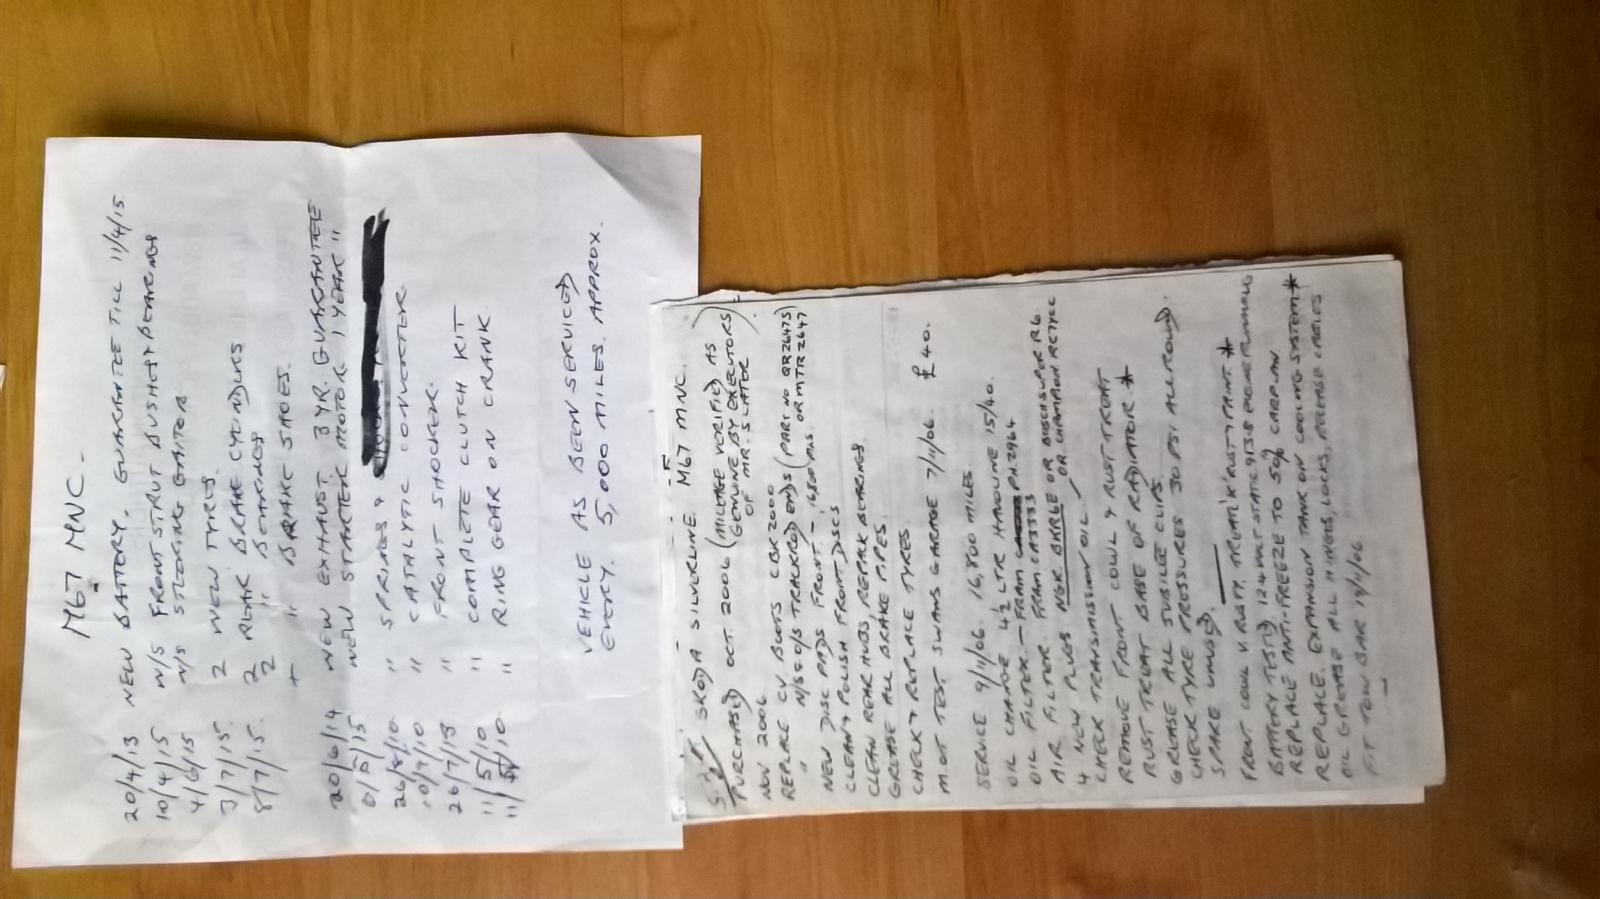 M67 MNC.
20/4/13 NEW BATTERY. GUARANTEE TILL 11/4/15
10/4/15 N/S FRONT STRUT BUSHES & BEARINGS
4/6/15 N/S STEERING GAITOR
3/7/15. 2 NEW TYRES.
8/7/15. 2 REAR BRAKE CYLINDERS
2 " BEARINGS
+ " BRAKE SHOES.
20/6/14 NEW EXHAUST 3 YR. GUARANTEE
NEW STARTER MOTOR 1 YEAR "
26/8/10. " SPRINGS &
10/7/10 " CATALYTIC CONVERTER.
26/7/13 " FRONT SHOCKER.
11/5/10 " COMPLETE CLUTCH KIT
11/5/10. " RING GEAR ON CRANK
VEHICLE AS BEEN SERVICED
EVERY. 5,000 MILES. APPROX.
SKODA SILVERLINE. M67 MNC.
PURCHASED OCT. 2006 (MILEAGE VERIFIED AS
GENUINE BY EXECUTORS
OF MR. SLATER)
NOV 2006
REPLACE CV BOOTS CBR 2000
" N/S & O/S TRACKROD ENDS (PART NO QR2647S
OR MTR2647)
NEW DISC PADS FRONT. -
CLEAN & POLISH FRONT DISCS
CLEAN REAR HUBS, REPACK BEARINGS
GREASE ALL BRAKE PIPES.
CHECK & REPLACE TYRES.
M.O.T TEST SWANS GARAGE 7/11/06. £40.
SERVICE 9/11/06. 16,800 MILES.
OIL CHANGE 4½ LTR HAVOLINE 15/40.
OIL FILTER. - FRAM PH 2964
AIR FILTER. FRAM CA3333
4 NEW PLUGS NGK BKR6E OR BOSCH SUPER R6.
OR CHAMPION RC7YCC
CHECK TRANSMISSION OIL.
REMOVE FRONT COWL & RUST TREAT
RUST TREAT BASE OF RADIATOR. *
GREASE ALL SUBILEE CLIPS.
CHECK TYRE PRESSURES 30 PSI ALL ROUND.
SPARE UNUSED.
FRONT COWL V RUSTY. TREAT 'K' RUST & PAINT *
BATTERY TESTED 12.4 VOLT STATIC &13.8 ENGINE RUNNING
REPLACE ANTI-FREEZE TO 50% CARPLAN
REPLACE. EXPANSION TANK ON COOLING SYSTEM *
OIL GREASE ALL HINGES, LOCKS, RELEASE CABLES
FIT TOW BAR 19/11/06